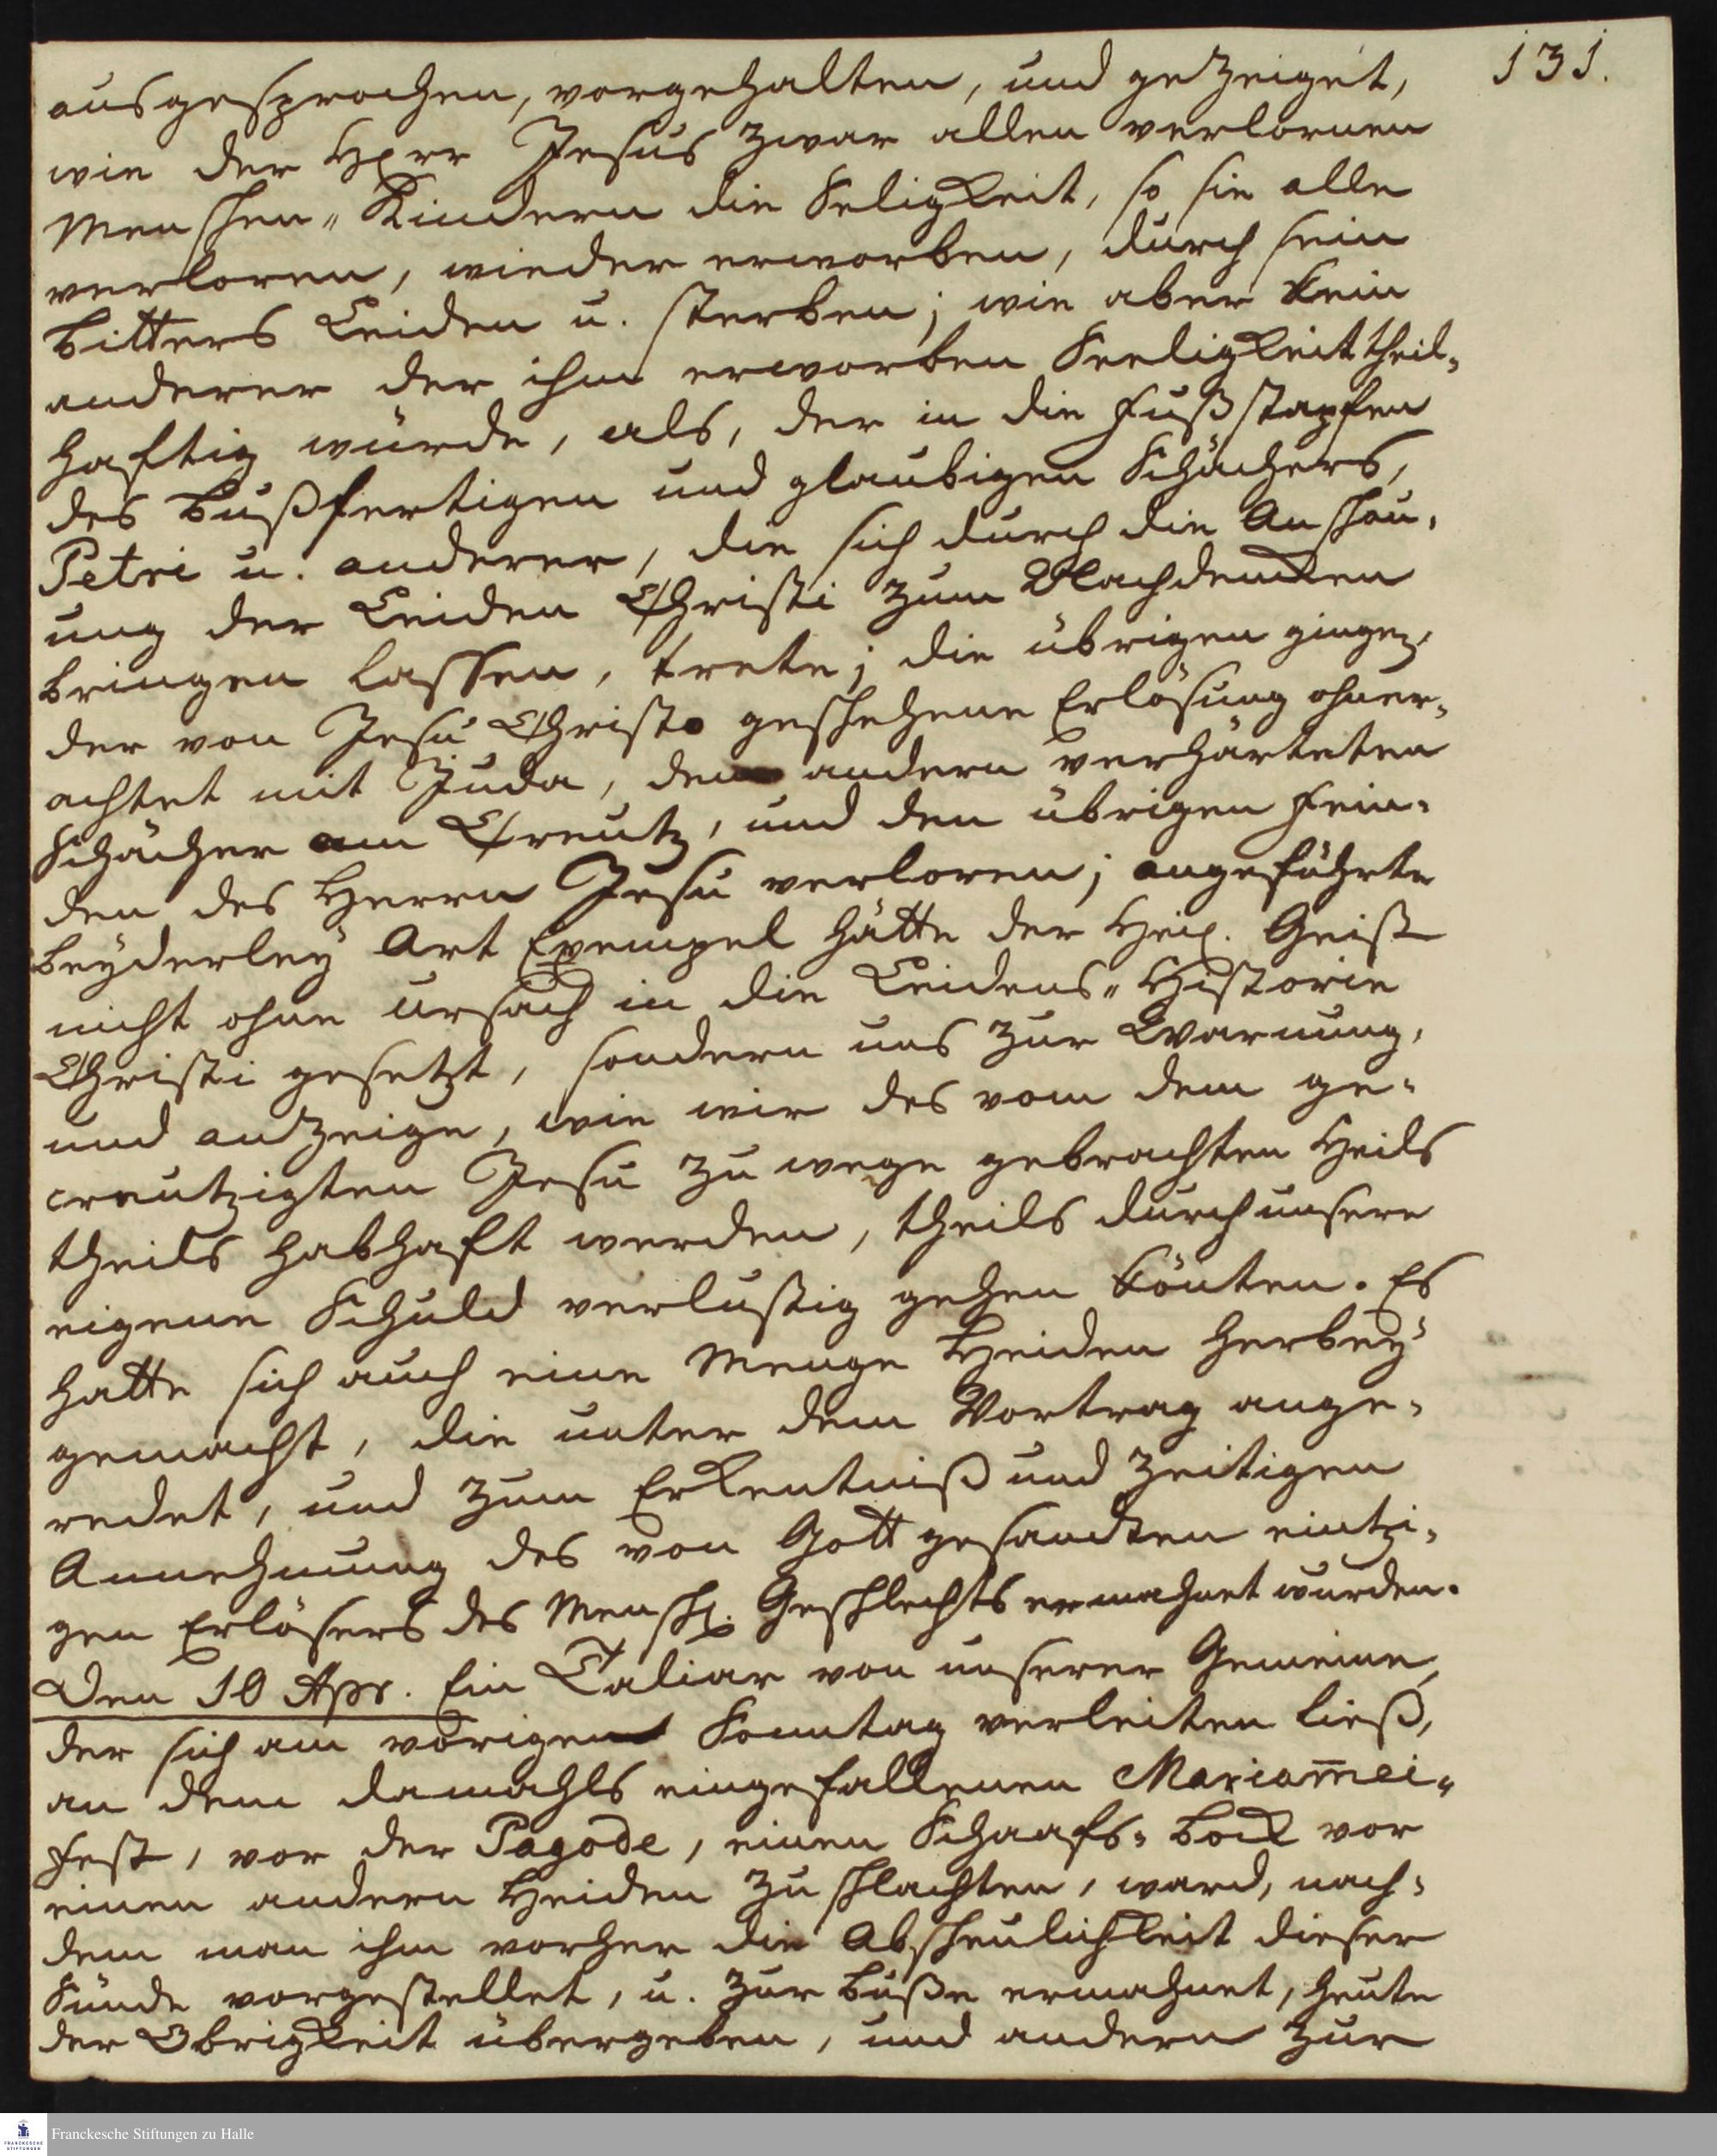 131.
ausgesprochen, vorgehalten, und gezeiget,
wie der Herr Jesus zwar allen verlornen
Menschen-Kindern die Seligkeit, so sie alle
verloren, wieder erworben, durch sein
bitters Leiden u. sterben; wie aber kein
anderer der ihm erworben Seeligkeit theil-
haftig würde, als, der in die Fußstapfen
des bußfertigen und glaubigen Schächers,
Petri u. anderer, die sich durch die Anschau-
ung der Leiden Christi zum Nachdencken
bringen lassen, trete; die übrigen gingen,
der von Jesu Christo geschehene Erlösung ohner-
achtet mit Juda, dem andern verhärteten
Schächer am Creutz, und den übrigen Fein-
den des Herrn Jesu verloren; angeführte
beyderley Art Exempel hätte der Heil. Geist
nicht ohne Ursach in die Leidens-Historie
Christi gesetzt, sondern uns zur Warnung,
und anzeige, wie wir des vom dem ge-
creutzigten Jesu zu wege gebrachten Heils
theils habhaft werden, theils durch unsere
eigene Schuld verlustig gehen könten. Es
hatte sich auch eine Menge Heiden herbey
gemacht, die unter dem Vortrag ange-
redet, und zum Erkentniß und zeitigen
Annehmung des von Gott gesandten eintzi-
gen Erlösers des Menschl. Geschlechts ermahnet wurden.
Den 10 Apr. Ein Taliar von unserer Gemeine,
der sich am vorigen Sonntag verleiten ließ,
an dem damahls eingefallenen Mariam̄ei-
Fest, vor der Pagode, einen Schaafs-Bock vor
einen andern Heiden zu schlachten, ward, nach-
dem man ihm vorher die Abscheulichkeit dieser
Sünde vorgestellet, u. zur Buße ermahnet, heute
der Obrigkeit übergeben, und andern zur
FRANCKESCHE
STIFTUNGEN
Franckesche Stiftungen zu Halle